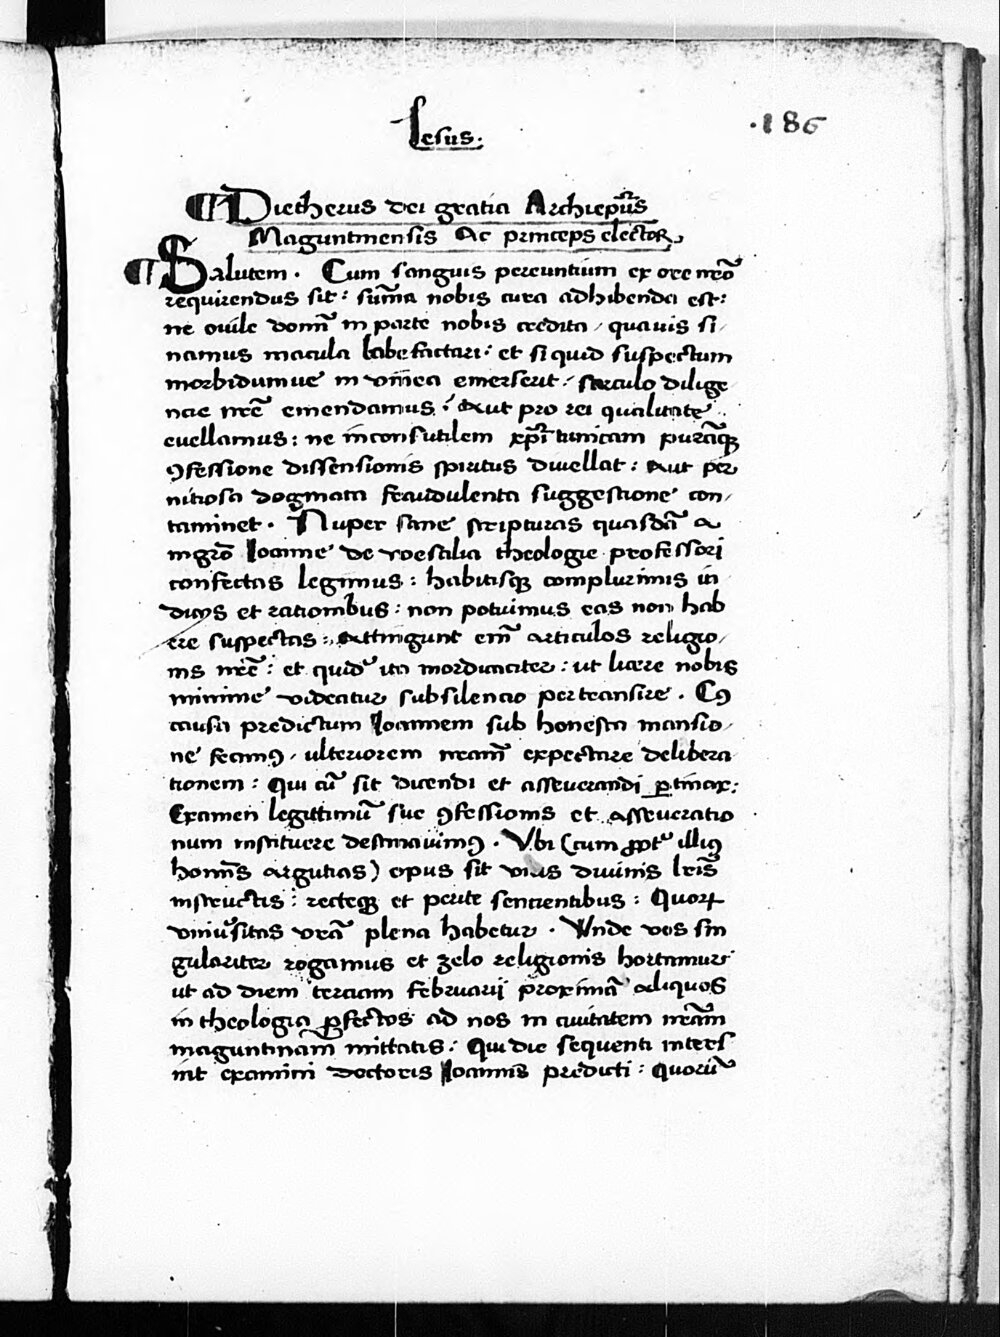 Iesus.
.186
¶ Dietherus dei gratia Archiepūs
Maguntinensis Ac princeps elector,
¶ Salutem. Cum sanguis pereuntium ex ore nrō
requirendus sit: sūma nobis cura adhibenda est:
ne ouile domī in parte nobis credita, quauis si/
namus macula labefactari: et si quid suspectum
morbidumue in vinea emerserit: sarculo dilige
ncie nrē emendamus: Aut pro rei qualitate
euellamus: ne inconsutilem xp̄i tunicam purāq;
ꝯfessione dissensionis spiritus diuellat: Aut per
nitiosa dogmata fraudulenta suggestione con/
taminet. Nuper sane scripturas quasdā a
mgrō Ioanne de vvestilia theologie professori
confectas legimus: habitisq; complurimis in
dicijs et rationibus: non potuimus eas non hab
ere suspectas: Attingunt em̄ articulos religio/
nis nrē: et quidē ita morduaciter: ut licere nobis
minime videatur subsilencio pertransire. Eꝯ
causa predictum Ioannem sub honesta mansio/
ne fecimꝯ, ulteriorem nrām expectare delibera
tionem: Qui cū sit dicendi et asseuerandi ꝑtinax:
Examen legittimū sue ꝯfessionis et asseueratio
num instituere destinauimꝯ. Vbi (cum ꝓpt illiꝯ
homīs argutias) opus sit viris diuinis lrīs
instructis: recteq; et perite sentientibus: Quorꝝ
vniūsitas vrā plena habetur. Vnde vos sin
gulariter rogamus et zelo religionis hortamur
ut ad diem terciam februarij proximā aliquos
in theologia ꝑfectos ad nos in ciuitatem nrām
maguntinam mittatis: Qui die sequenti inters
int examini doctoris Ioannis predicti: Quorū